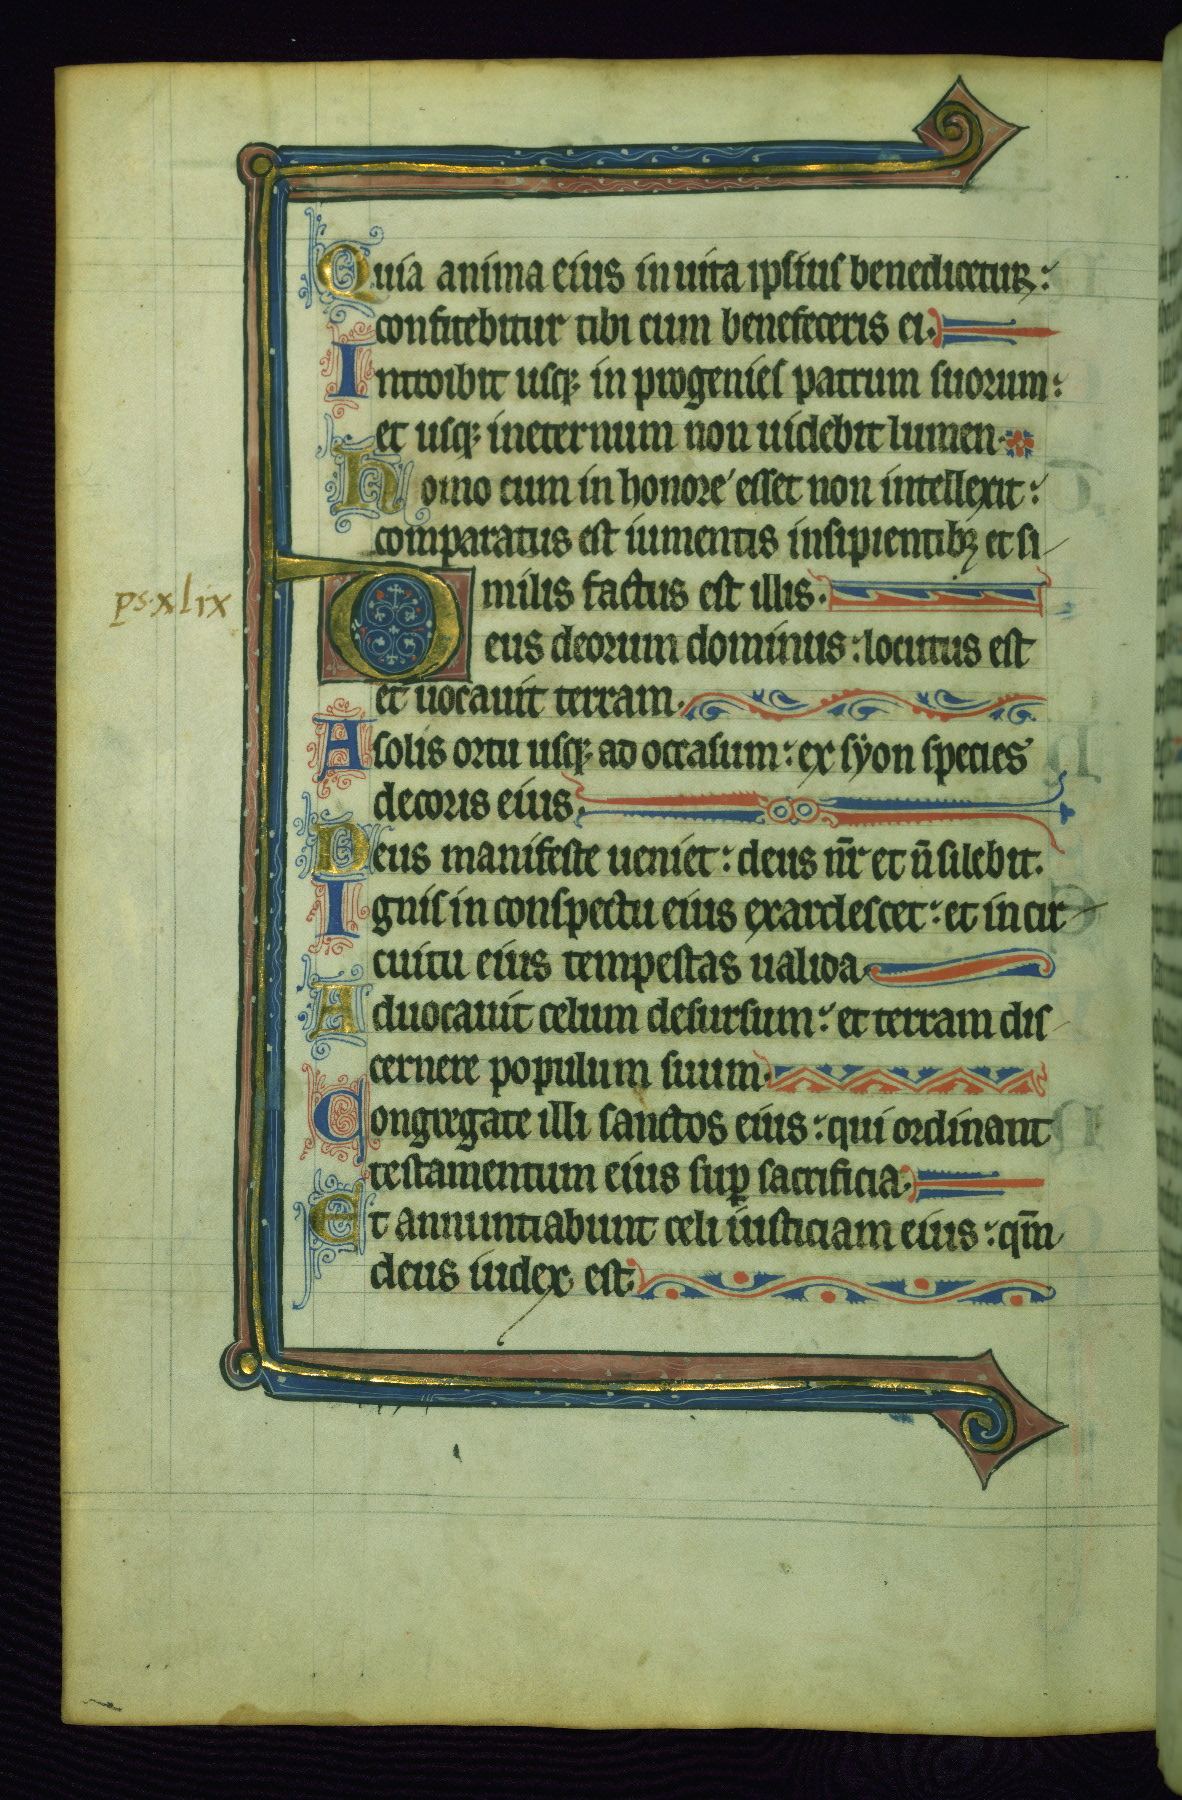 Quia anima eius in uita ipsius benedicetur:
confitebitur tibi cum benefeceris ei.
Introibit usq; in progenies patrum suorum:
et usq; in eternum non uidebit lumen.
Homo cum in honore esset non intellexit:
comparatus est iumentis insipientibꝫ et si
milis factus est illis.
ps. xlix
Deus deorum dominus: locutus est
et uocauit terram.
A solis ortu usq; ad occasum: ex syon species
decoris eius.
Deus manifeste ueniet: deus nr̄ et n̄ silebit.
Ignis in conspectu eius exardescet: et in cir
cuitu eius tempestas ualida
Aduocauit celum desursum: et terram dis
cernere populum suum.
Congregate illi sanctos eius: qui ordinant
testamentum eius suꝑ sacrificia.
Et annuntiabunt celi iusticiam eius: qm̄
deus iudex est.